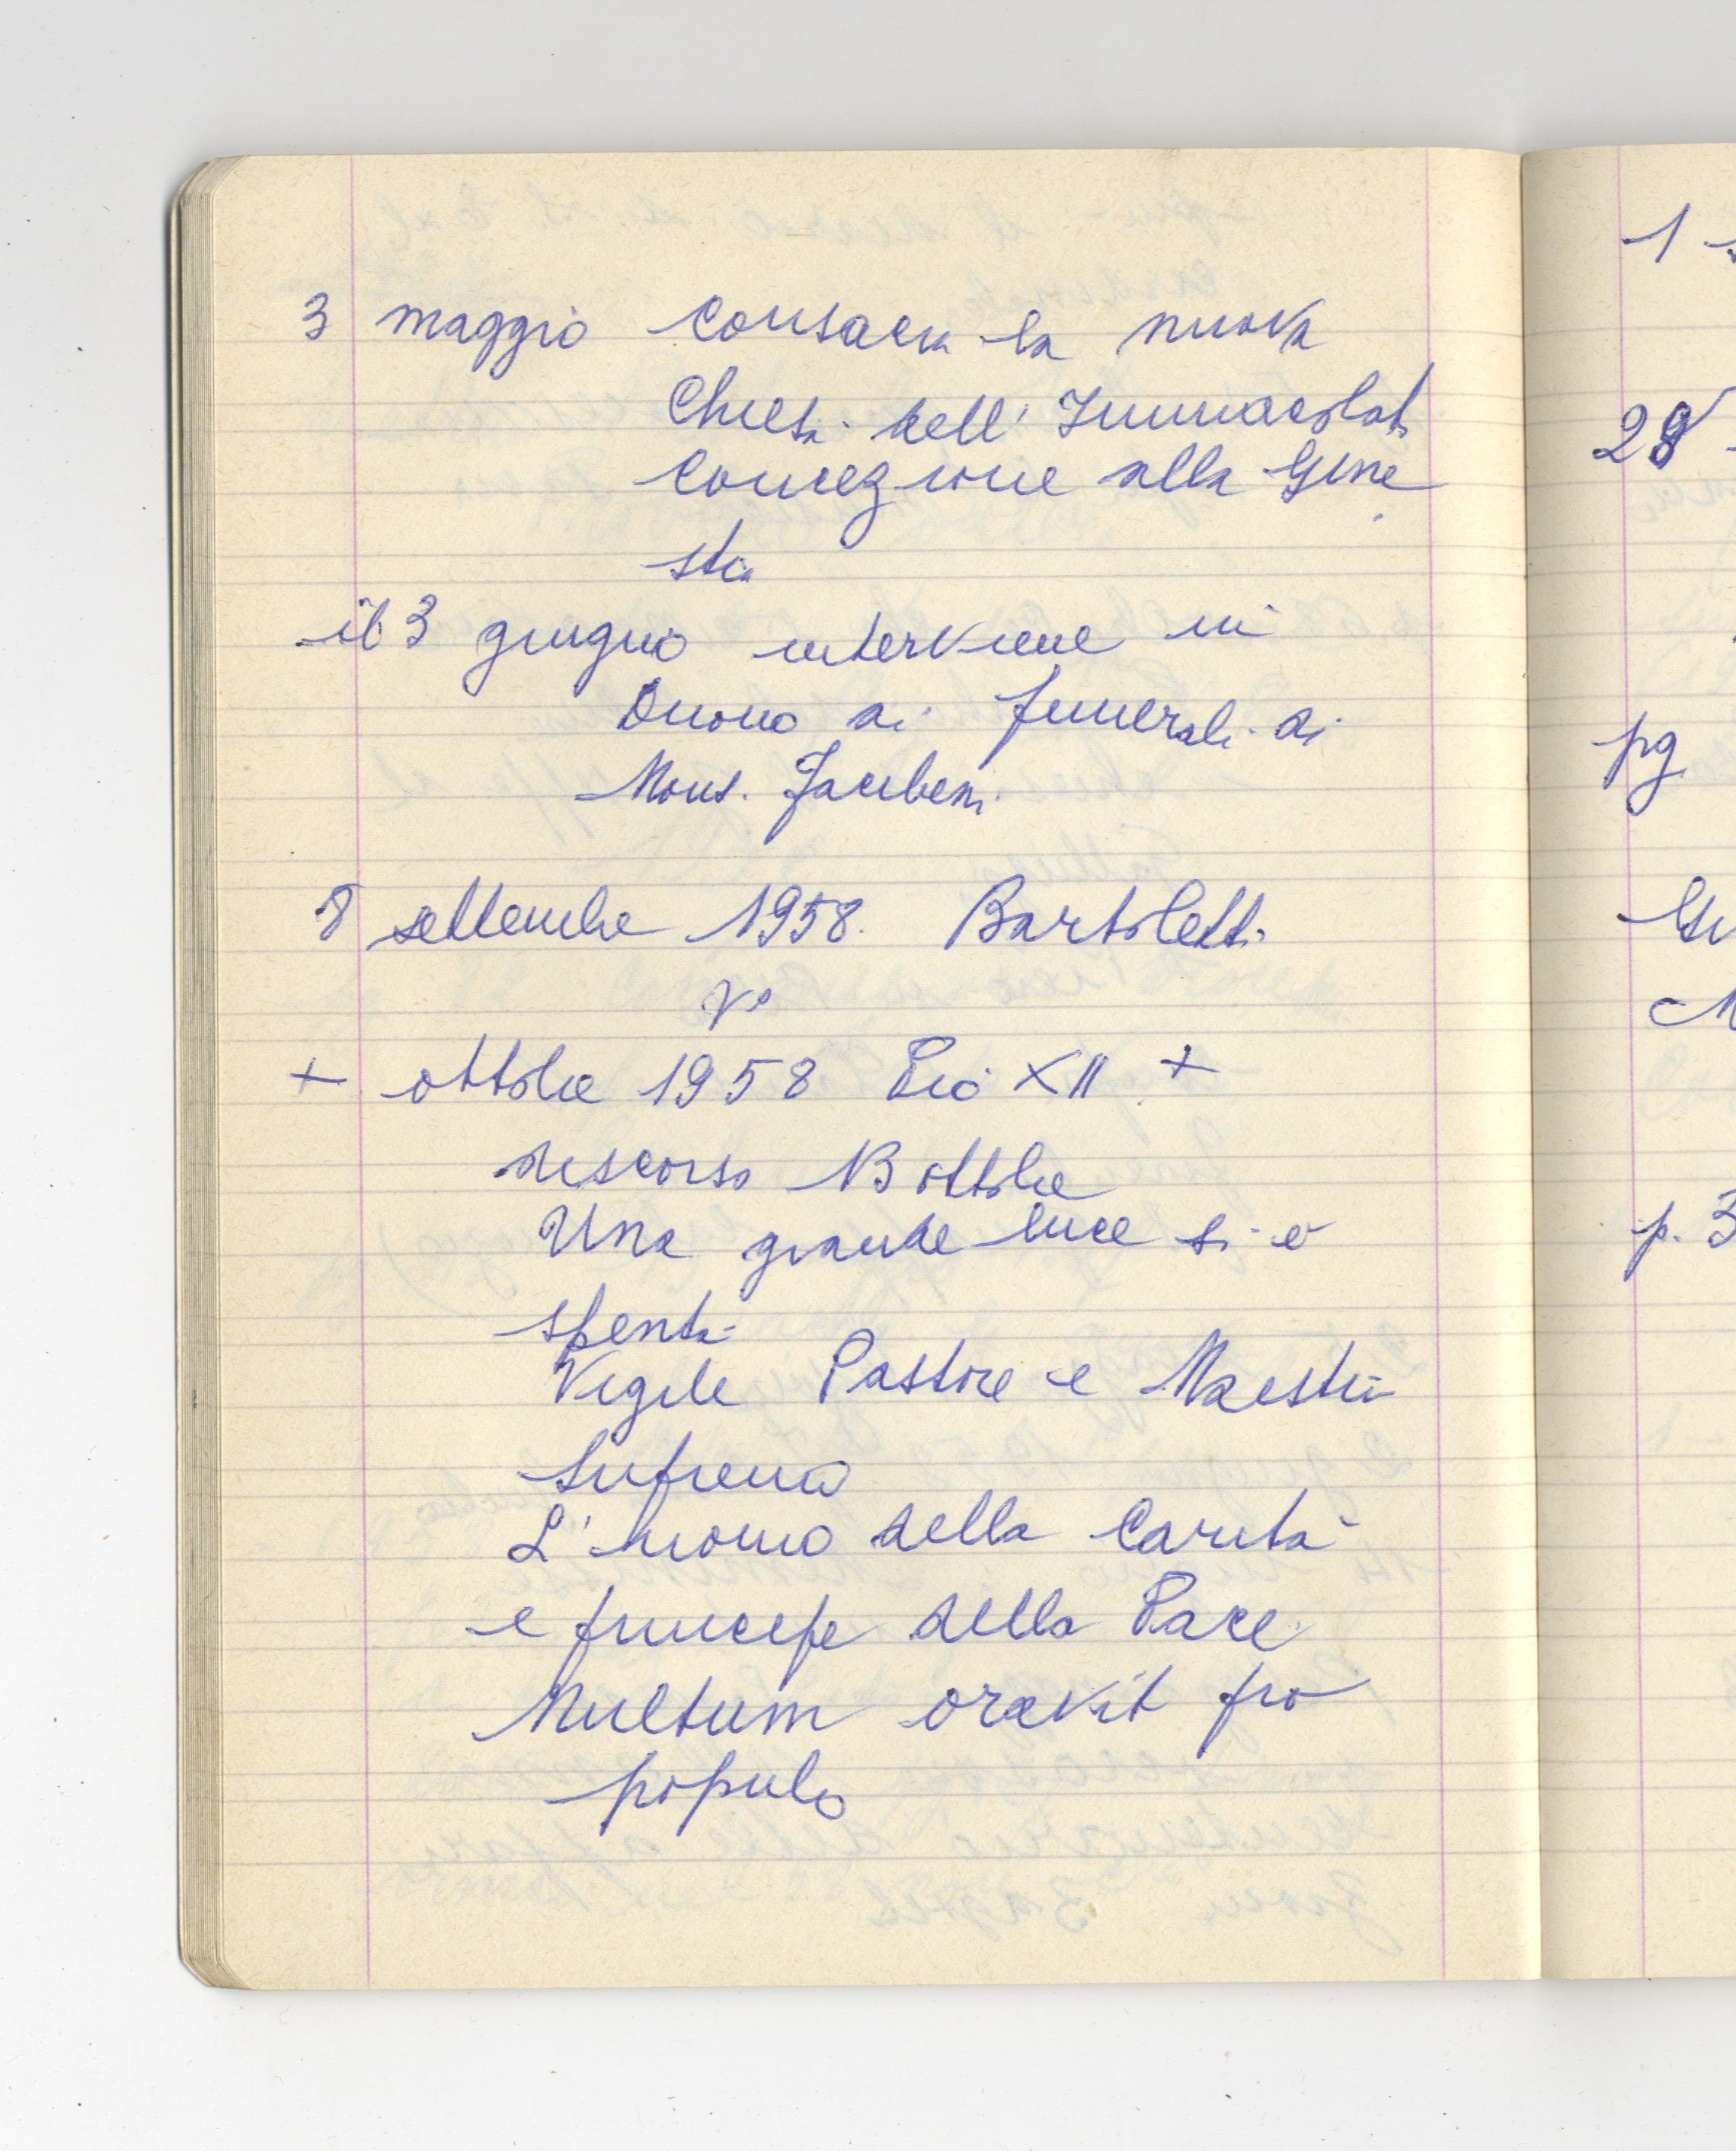 3 maggio consacra la nuova
Chiesa dell' Immacolata
Concezione alla Gine
stra
il 3 giugno interviene in
Duomo ai funerali di
Mons. Jacibeni
8 settembre 1958. Bartoletti
Vº
+ ottobre 1958 Pio XII +
discorso 13 ottobre
Una grande luce si è
spenta
Vigile Pastore e Maestro
Supremo
L'uomo della Carità
e principe della Pace
Multum oravit pro
populo
1
28
pg
Gi
M
p. 3